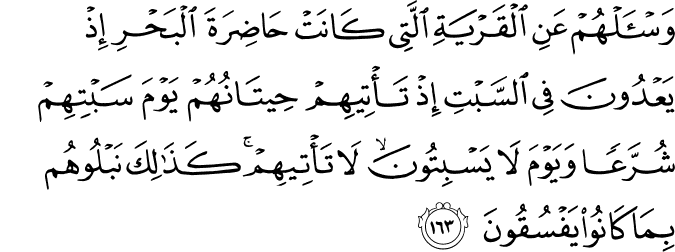 وَسۡـَٔلۡهُمۡ عَنِ ٱلۡقَرۡيَةِ ٱلَّتِي كَانَتۡ حَاضِرَةَ ٱلۡبَحۡرِ إِذۡ
يَعۡدُونَ فِي ٱلسَّبۡتِ إِذۡ تَأۡتِيهِمۡ حِيتَانُهُمۡ يَوۡمَ سَبۡتِهِمۡ
شُرَّعٗا وَيَوۡمَ لَا يَسۡبِتُونَۙ لَا تَأۡتِيهِمۡۚ كَذَٰلِكَ نَبۡلُوهُم
بِمَا كَانُواْ يَفۡسُقُونَ ١٦٣